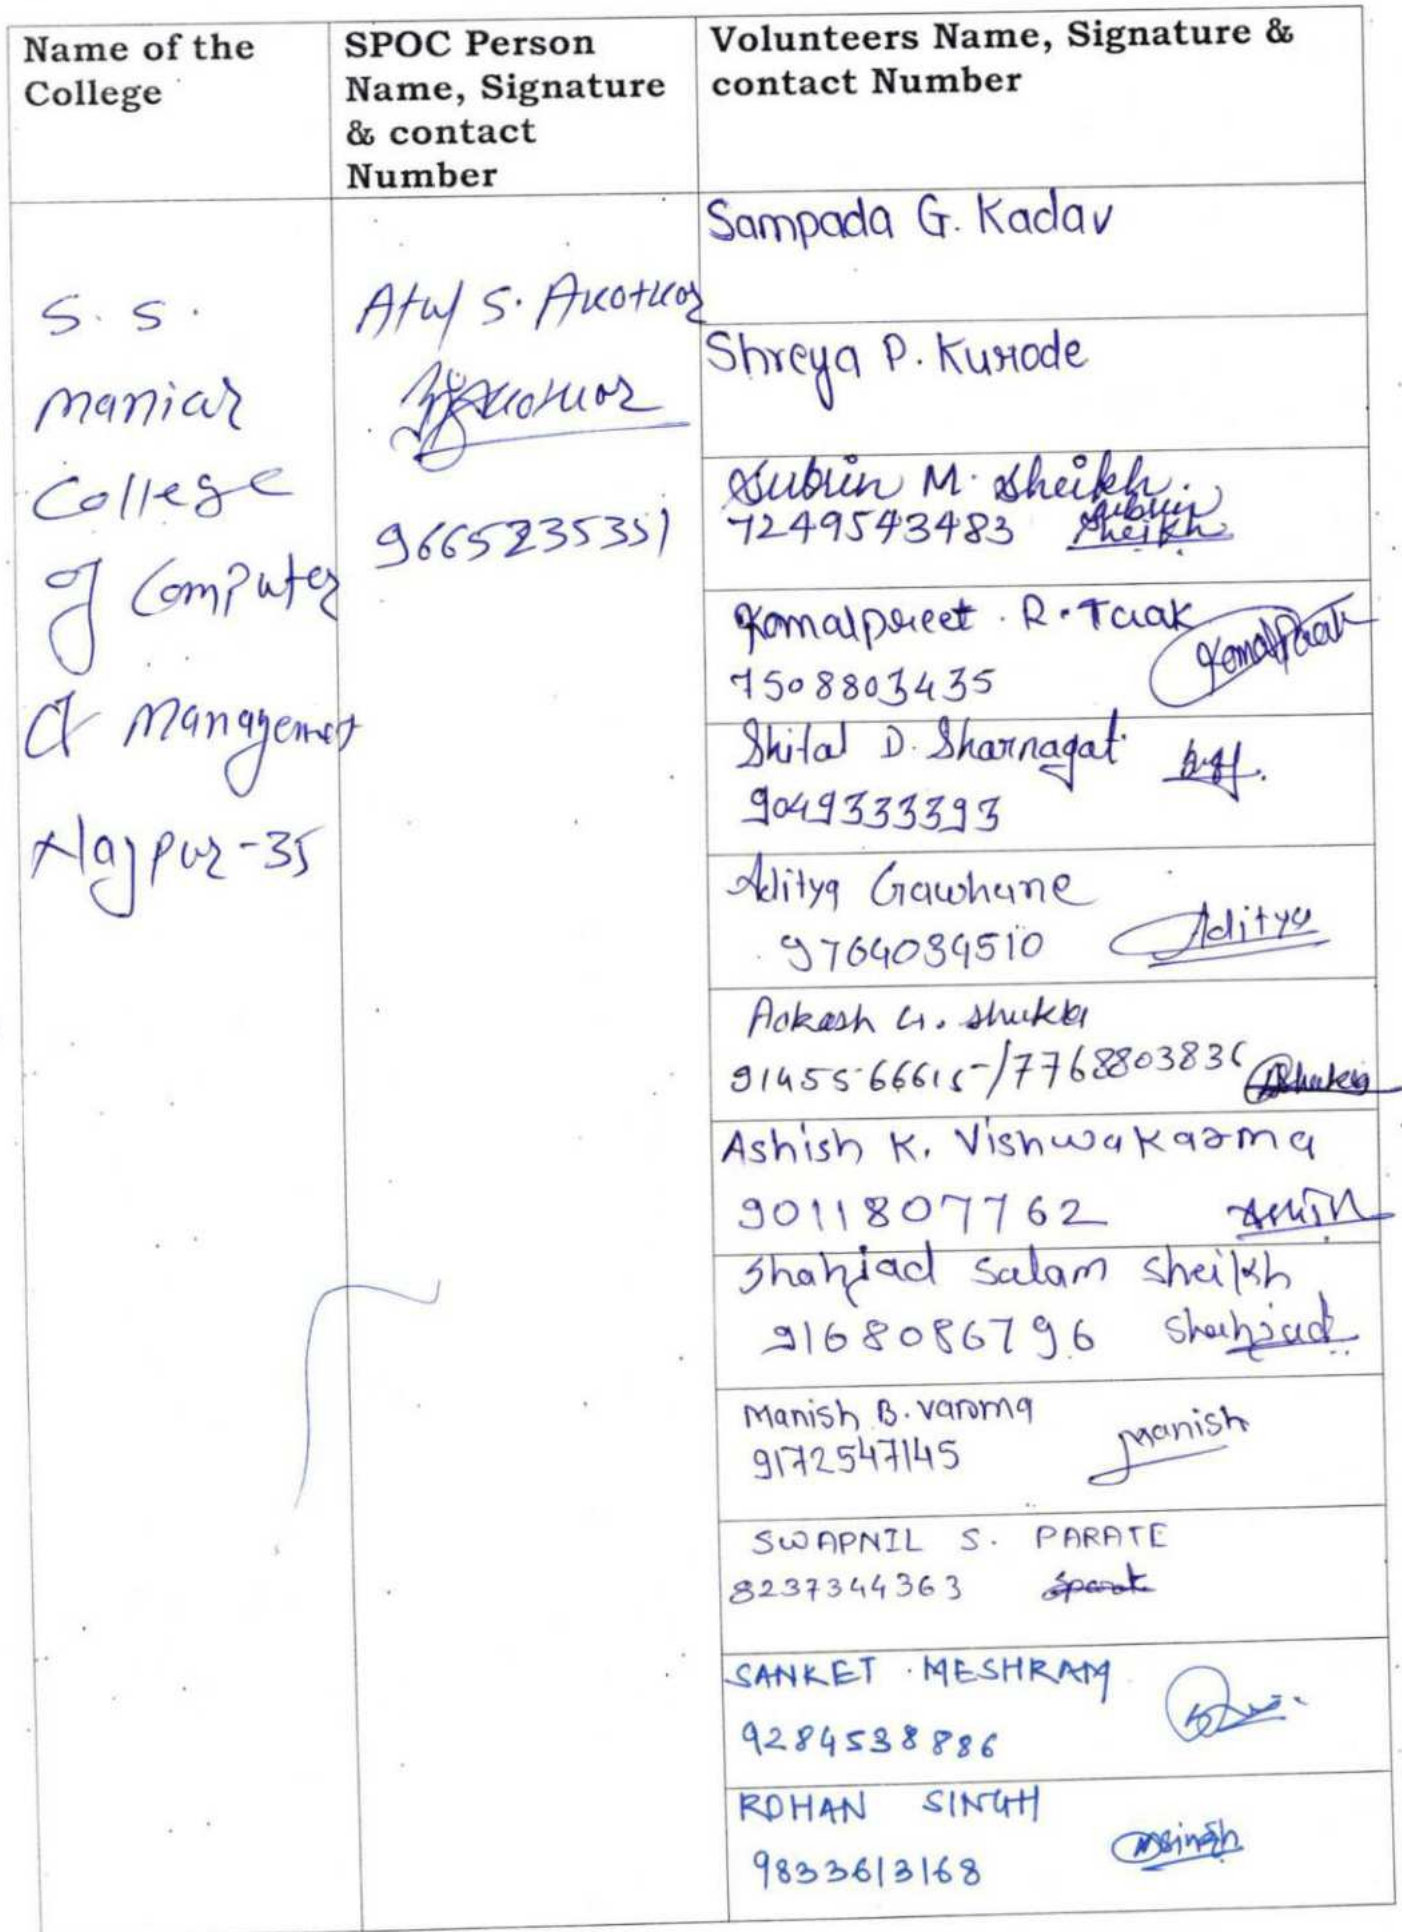 Name of the
College
SPOC Person
Name, Signature
& contact
Number
Volunteers Name, Signature &
contact Number
S. S.
Maniar
College
of Computer
& Management
Nagpur-35
Atul S. Akotkar
Akotkar
9665235351
Sampada G. Kadav
Shreya P. Kurode
Subrin M. Sheikh.
7249543483 Subrin
Sheikh
Komalpreet . R. Taak
7508803435
Shital D. Sharnagat
9049333393
Aditya Gawhane
9764039510 Aditya
Aakash G. Shukla
9145566615/7768803836 Shukla
Ashish K. Vishwakarma
9011807762 Ashish
Shahjad Salam Sheikh
9168086796 Shahjad
Manish B. Varma
9172547145 Manish
SWAPNIL S. PARATE
8237344363 Sparate
SANKET MESHRAM
9284538886
ROHAN SINGH
9833613168 Rsingh